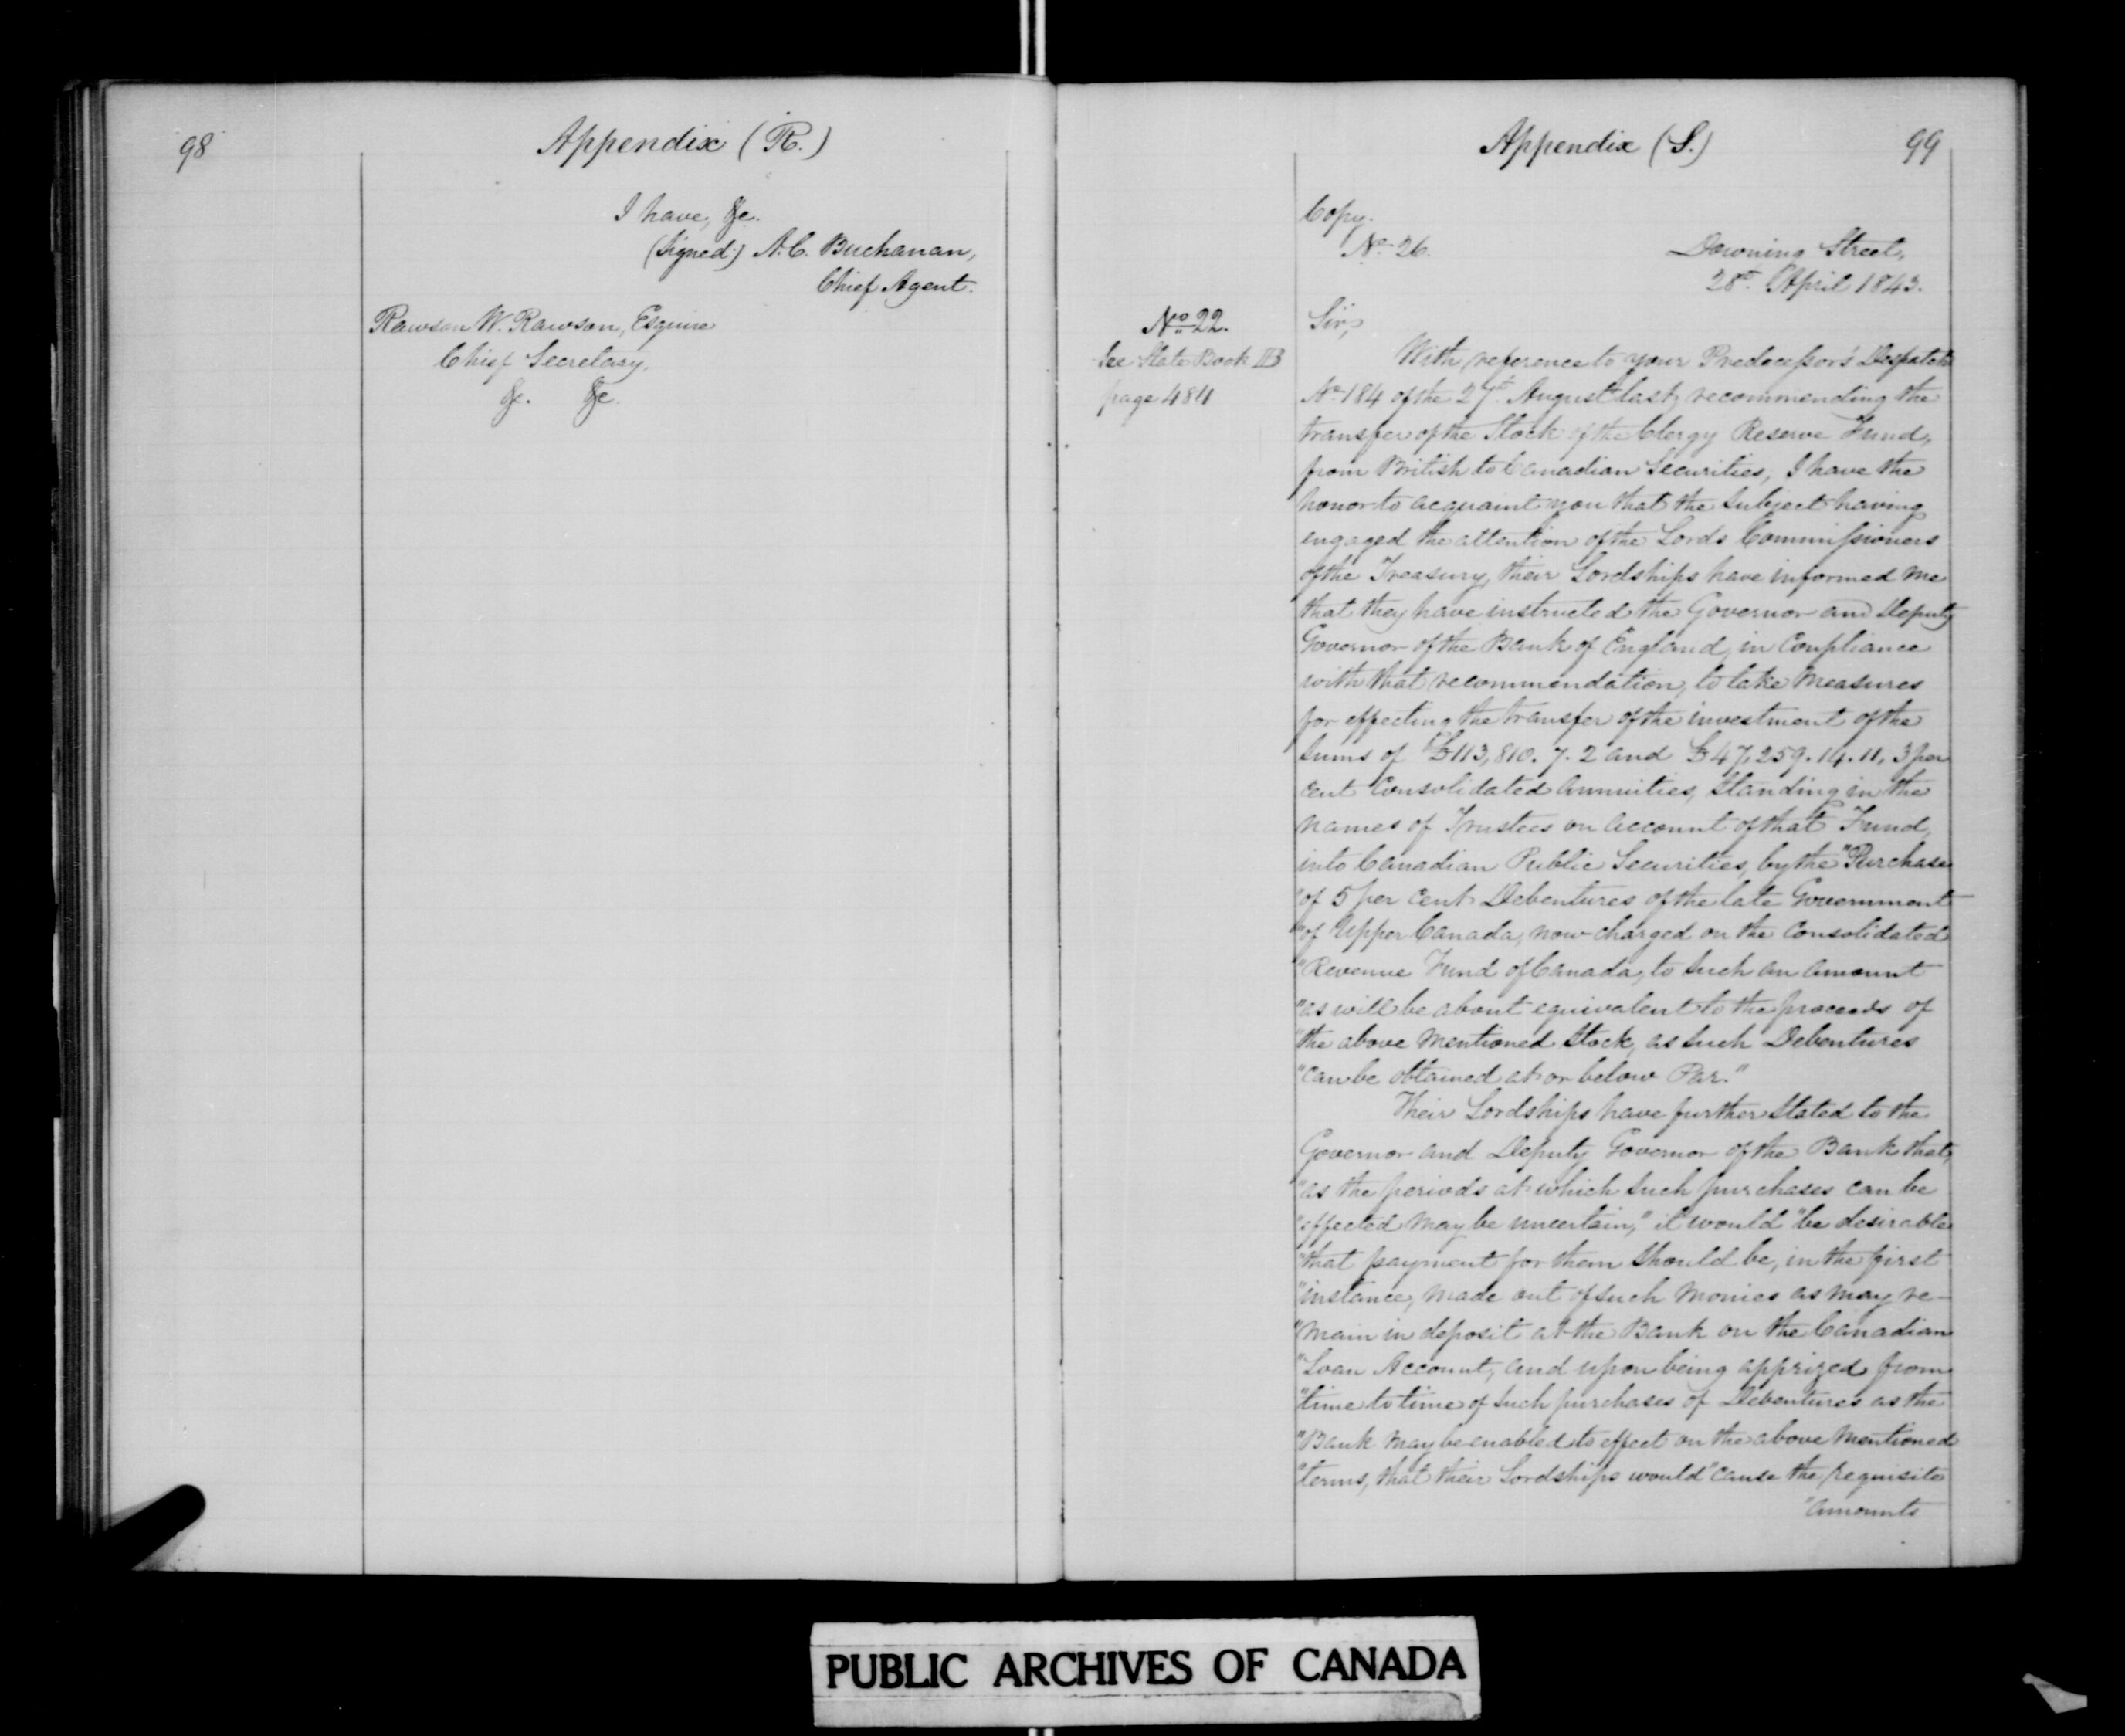 98
Appendix (R.)
I have, &c.
(Signed) A. C. Buchanan,
Chief Agent.
Rawson W. Rawson, Esquire
Chief Secretary,
&c. &c.
Appendix (S.)
99
Copy.
No. 26.
Downing Street,
28th April 1843.
No. 22.
See State Book
page 484
Sir,
With reference to your Predecessor's Despatch
No. 184 of the 27th August last, recommending the
transfer of the Stock of the Clergy Reserve Fund,
from British to Canadian Securities, I have the
honor to acquaint you that the subject having
engaged the attention of the Lords Commissioners
of the Treasury, their Lordships have informed me
that they have instructed the Governor and Deputy
Governor of the Bank of England, in Compliance
with that recommendation, to take measures
for effecting the transfer of the investment of the
sums of £113,810. 7. 2 and £47,259. 14. 11, 3 per
cent Consolidated Annuities, standing in the
names of Trustees on account of that Fund,
into Canadian Public Securities, by the "Purchase
"of 5 per cent Debentures of the late Government
"of Upper Canada, now charged on the Consolidated
"Revenue Fund of Canada, to such an amount
"as will be about equivalent to the proceeds of
"the above mentioned Stock, as such Debentures
"can be obtained at or below Par."
Their Lordships have further stated to the
Governor and Deputy Governor of the Bank that,
"as the periods at which such purchases can be
"effected may be uncertain," it would "be desirable
"that payment for them should be, in the first
"instance, made out of such monies as may re-
"main in deposit at the Bank on the Canadian
"Loan Account, and upon being apprized from
"time to time of such purchases of Debentures as the
"Bank may be enabled to effect on the above mentioned
"terms, that their Lordships would "cause the requisite
"amounts
PUBLIC ARCHIVES OF CANADA